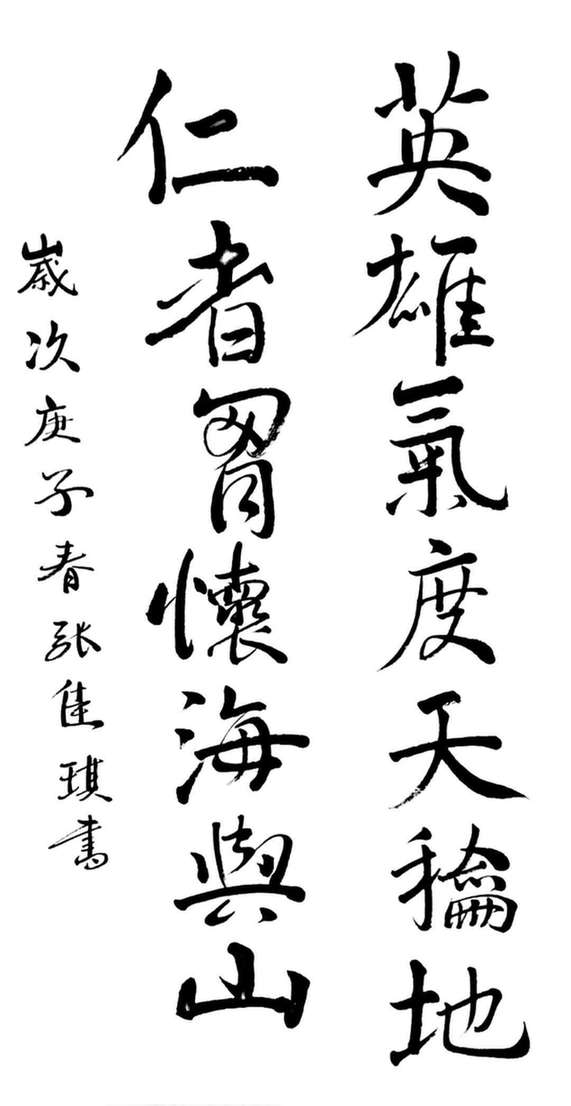 英雄氣度天龢地
仁者胷懷海與山
歲次庚子春張佳琪書